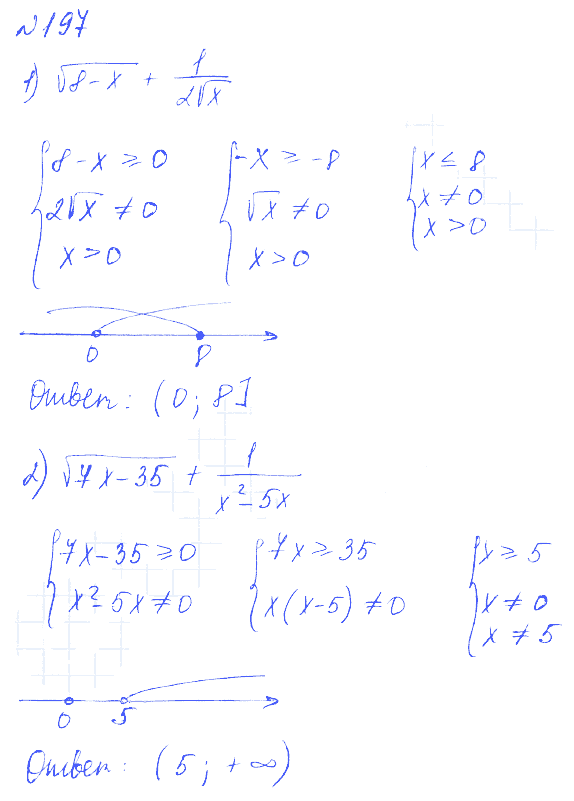 №197
1) √(8-x) + 1/(2√x)
{ 8-x ≥ 0 { -x ≥ -8 { x ≤ 8
{ 2√x ≠ 0 { √x ≠ 0 { x ≠ 0
{ x > 0 { x > 0 { x > 0
0 8
Ответ: (0; 8]
2) √(7x-35) + 1/(x²-5x)
{ 7x-35 ≥ 0 { 7x ≥ 35 { x ≥ 5
{ x²-5x ≠ 0 { x(x-5) ≠ 0 { x ≠ 0
{ x ≠ 5
0 5
Ответ: (5; +∞)